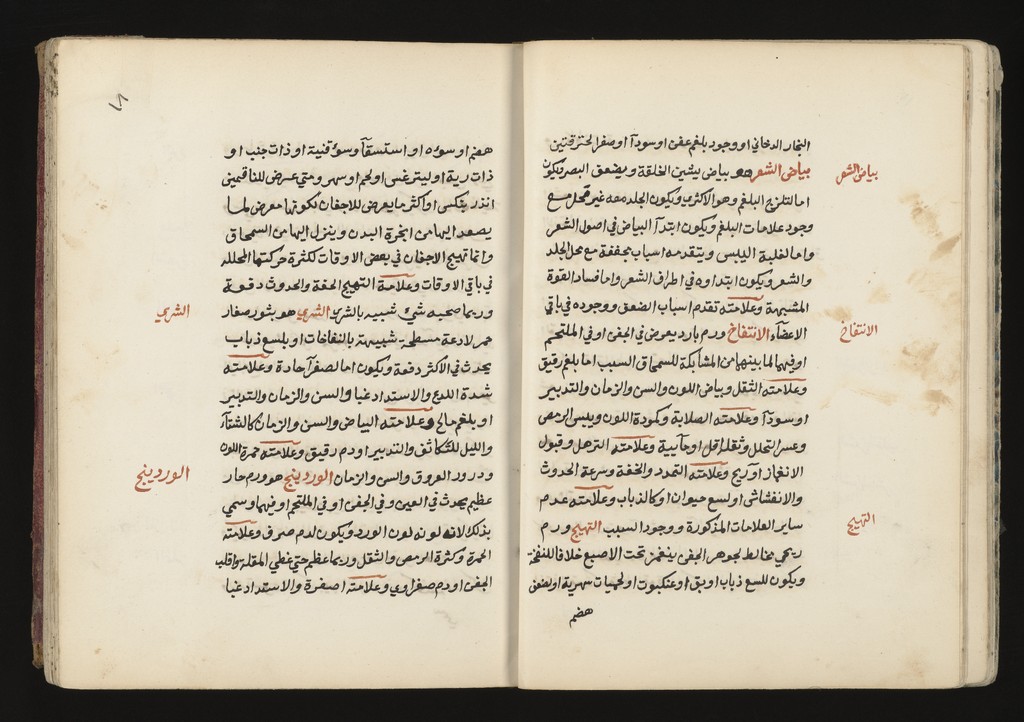 البخار الدخاني او وجود بلغم عفن او سودآ او صفرا محترقتين
بياض الشعر
بياض الشعر هو بياض يشين الخلقة ويضعف البصر ويكون
اما لتلزج البلغم وهو الاكثري ويكون الجلد معه غير قحل مع
وجود علامات البلغم ويكون ابتدآ البياض في اصول الشعر
واما لغلبة اليبس ويتقدمه اسباب مجففة مع محل الجلد
والشعر ويكون ابتداوه في اطراف الشعر واما فساد القوة
المشبهة وعلامته تقدم اسباب الضعف ووجوده في باقي
الانتفاخ
الاعضآء الانتفاخ ورم بارد يعرض في الجفن او في الملتحم
او فيهما لما بينهما من المشاكلة للسمحاق السبب اما بلغم رقيق
وعلامته الثقل وبياض اللون والسن والزمان والتدبير
او سودآ وعلامته الصلابة وكمودة اللون ويبس الرمص
وعسر التحلل وثقل اقل او مآيية وعلامته الترهل وقبول
الانغماز او ريح وعلامته التمدد والخفة وسرعة الحدوث
والانفشاش او لسع حيوان او كالذباب وعلامته عدم
التهيج
ساير العلامات المذكورة ووجود السبب التهيج ورم
ريحي مخالط لجوهر الجفن ينغمز تحت الاصبع خلافا للنفخة
ويكون للسع ذباب او بق او عنكبوت او لحميات سهرية او لضعف
هضم
٧١
هضم او سوءه او استسقآ وسوء قنية او ذات جنب او
ذات رية او ليترغس او لحم او سهر ومتى عرض للناقهين
انذر بنكس او اكثر ما يعرض للاجفان لكونها معرض لما
يصعد اليها من ابخرة البدن وينزل اليها من السمحاق
وانما تهيج الاجفان في بعض الاوقات لكثرة حركتها المحلله
في باقي الاوقات وعلامة التهيج الخفة والحدوث دفعة
الشري
وربما صحبه شيء شبيه بالشري الشري هو بثور صغار
حمر لاذعة مسطحة شبيهة بالنفاخات او بلسع ذباب
يحدث في الاكثر دفعة ويكون اما لصفرآ حادة وعلامته
شدة اللدع والاستداد غبا والسن والزمان والتدبير
او بلغم مالح وعلامته البياض والسن والزمان كالشتآ
والليل للتكاثف والتدبير او دم رقيق وعلامته حمرة اللون
الوردينج
ودرور العروق والسن والزمان الوردينج هو ورم حار
عظيم يحدث في العين وفي الجفن او في الملتحم او فيهما وسمي
بذلك لانه لونه لون الورد ويكون لدم صرف وعلامته
الحمرة وكثرة الرمص والثقل وربما عظم حتى غطي المقلة وقلب
الجفن او دم صفراوي وعلامته اصفرة والاستداد غبا